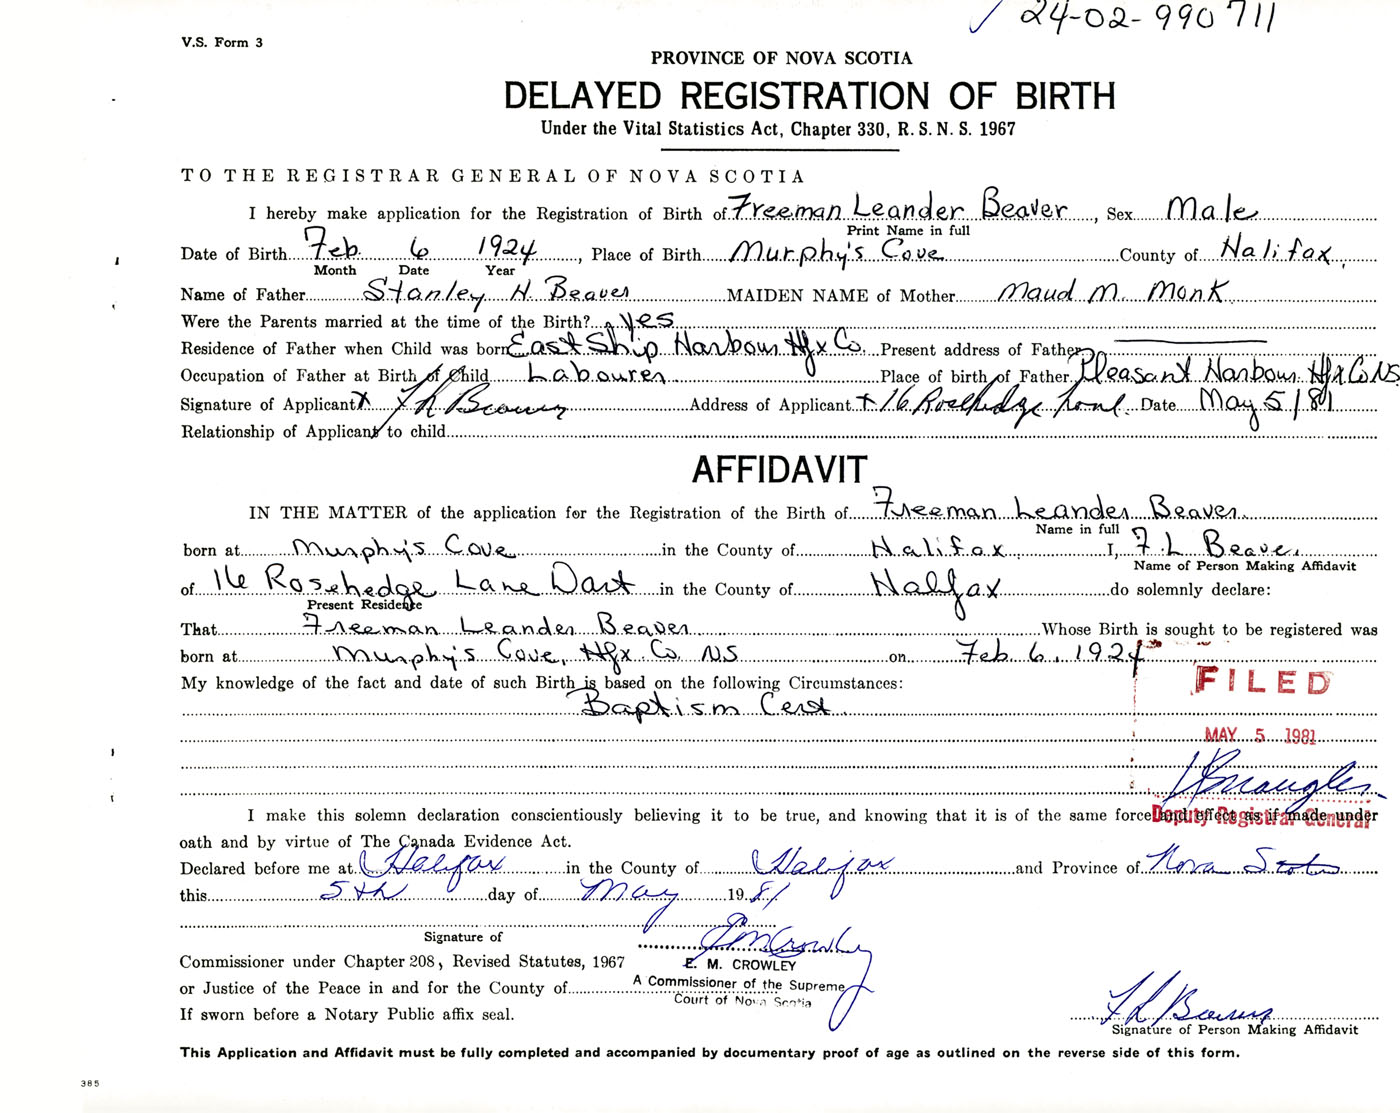 24-02-990711
V.S. Form 3
PROVINCE OF NOVA SCOTIA
DELAYED REGISTRATION OF BIRTH
Under the Vital Statistics Act, Chapter 330, R. S. N. S. 1967
TO THE REGISTRAR GENERAL OF NOVA SCOTIA
I hereby make application for the Registration of Birth of Freeman Leander Beaver, Sex Male
Print Name in full
Date of Birth Feb. 6 1924, Place of Birth Murphy's Cove County of Halifax,
Month Date Year
Name of Father Stanley H. Beaver MAIDEN NAME of Mother Maud M. Monk
Were the Parents married at the time of the Birth? Yes
Residence of Father when Child was born East Ship Harbour Hfx Co. Present address of Father
Occupation of Father at Birth of Child Labourer Place of birth of Father Pleasant Harbour Hfx Co NS
Signature of Applicant x F L Beaver Address of Applicant x 16 Rosehedge Lane Date May 5/81
Relationship of Applicant to child
AFFIDAVIT
IN THE MATTER of the application for the Registration of the Birth of Freeman Leander Beaver
Name in full
born at Murphy's Cove in the County of Halifax I, F L Beaver
Name of Person Making Affidavit
of 16 Rosehedge Lane Dart in the County of Halifax do solemnly declare:
Present Residence
That Freeman Leander Beaver Whose Birth is sought to be registered was
born at Murphy's Cove, Hfx. Co. NS on Feb 6, 1924
My knowledge of the fact and date of such Birth is based on the following Circumstances:
FILED
Baptism Cert.
MAY 5 1981
I make this solemn declaration conscientiously believing it to be true, and knowing that it is of the same force and effect as if made under
Deputy Registrar General
oath and by virtue of The Canada Evidence Act.
Declared before me at Halifax in the County of Halifax and Province of Nova Scotia
this 5th day of May 1981
Signature of E M Crowley
Commissioner under Chapter 208, Revised Statutes, 1967 E. M. CROWLEY
or Justice of the Peace in and for the County of A Commissioner of the Supreme
Court of Nova Scotia
If sworn before a Notary Public affix seal. F L Beaver
Signature of Person Making Affidavit
This Application and Affidavit must be fully completed and accompanied by documentary proof of age as outlined on the reverse side of this form.
385